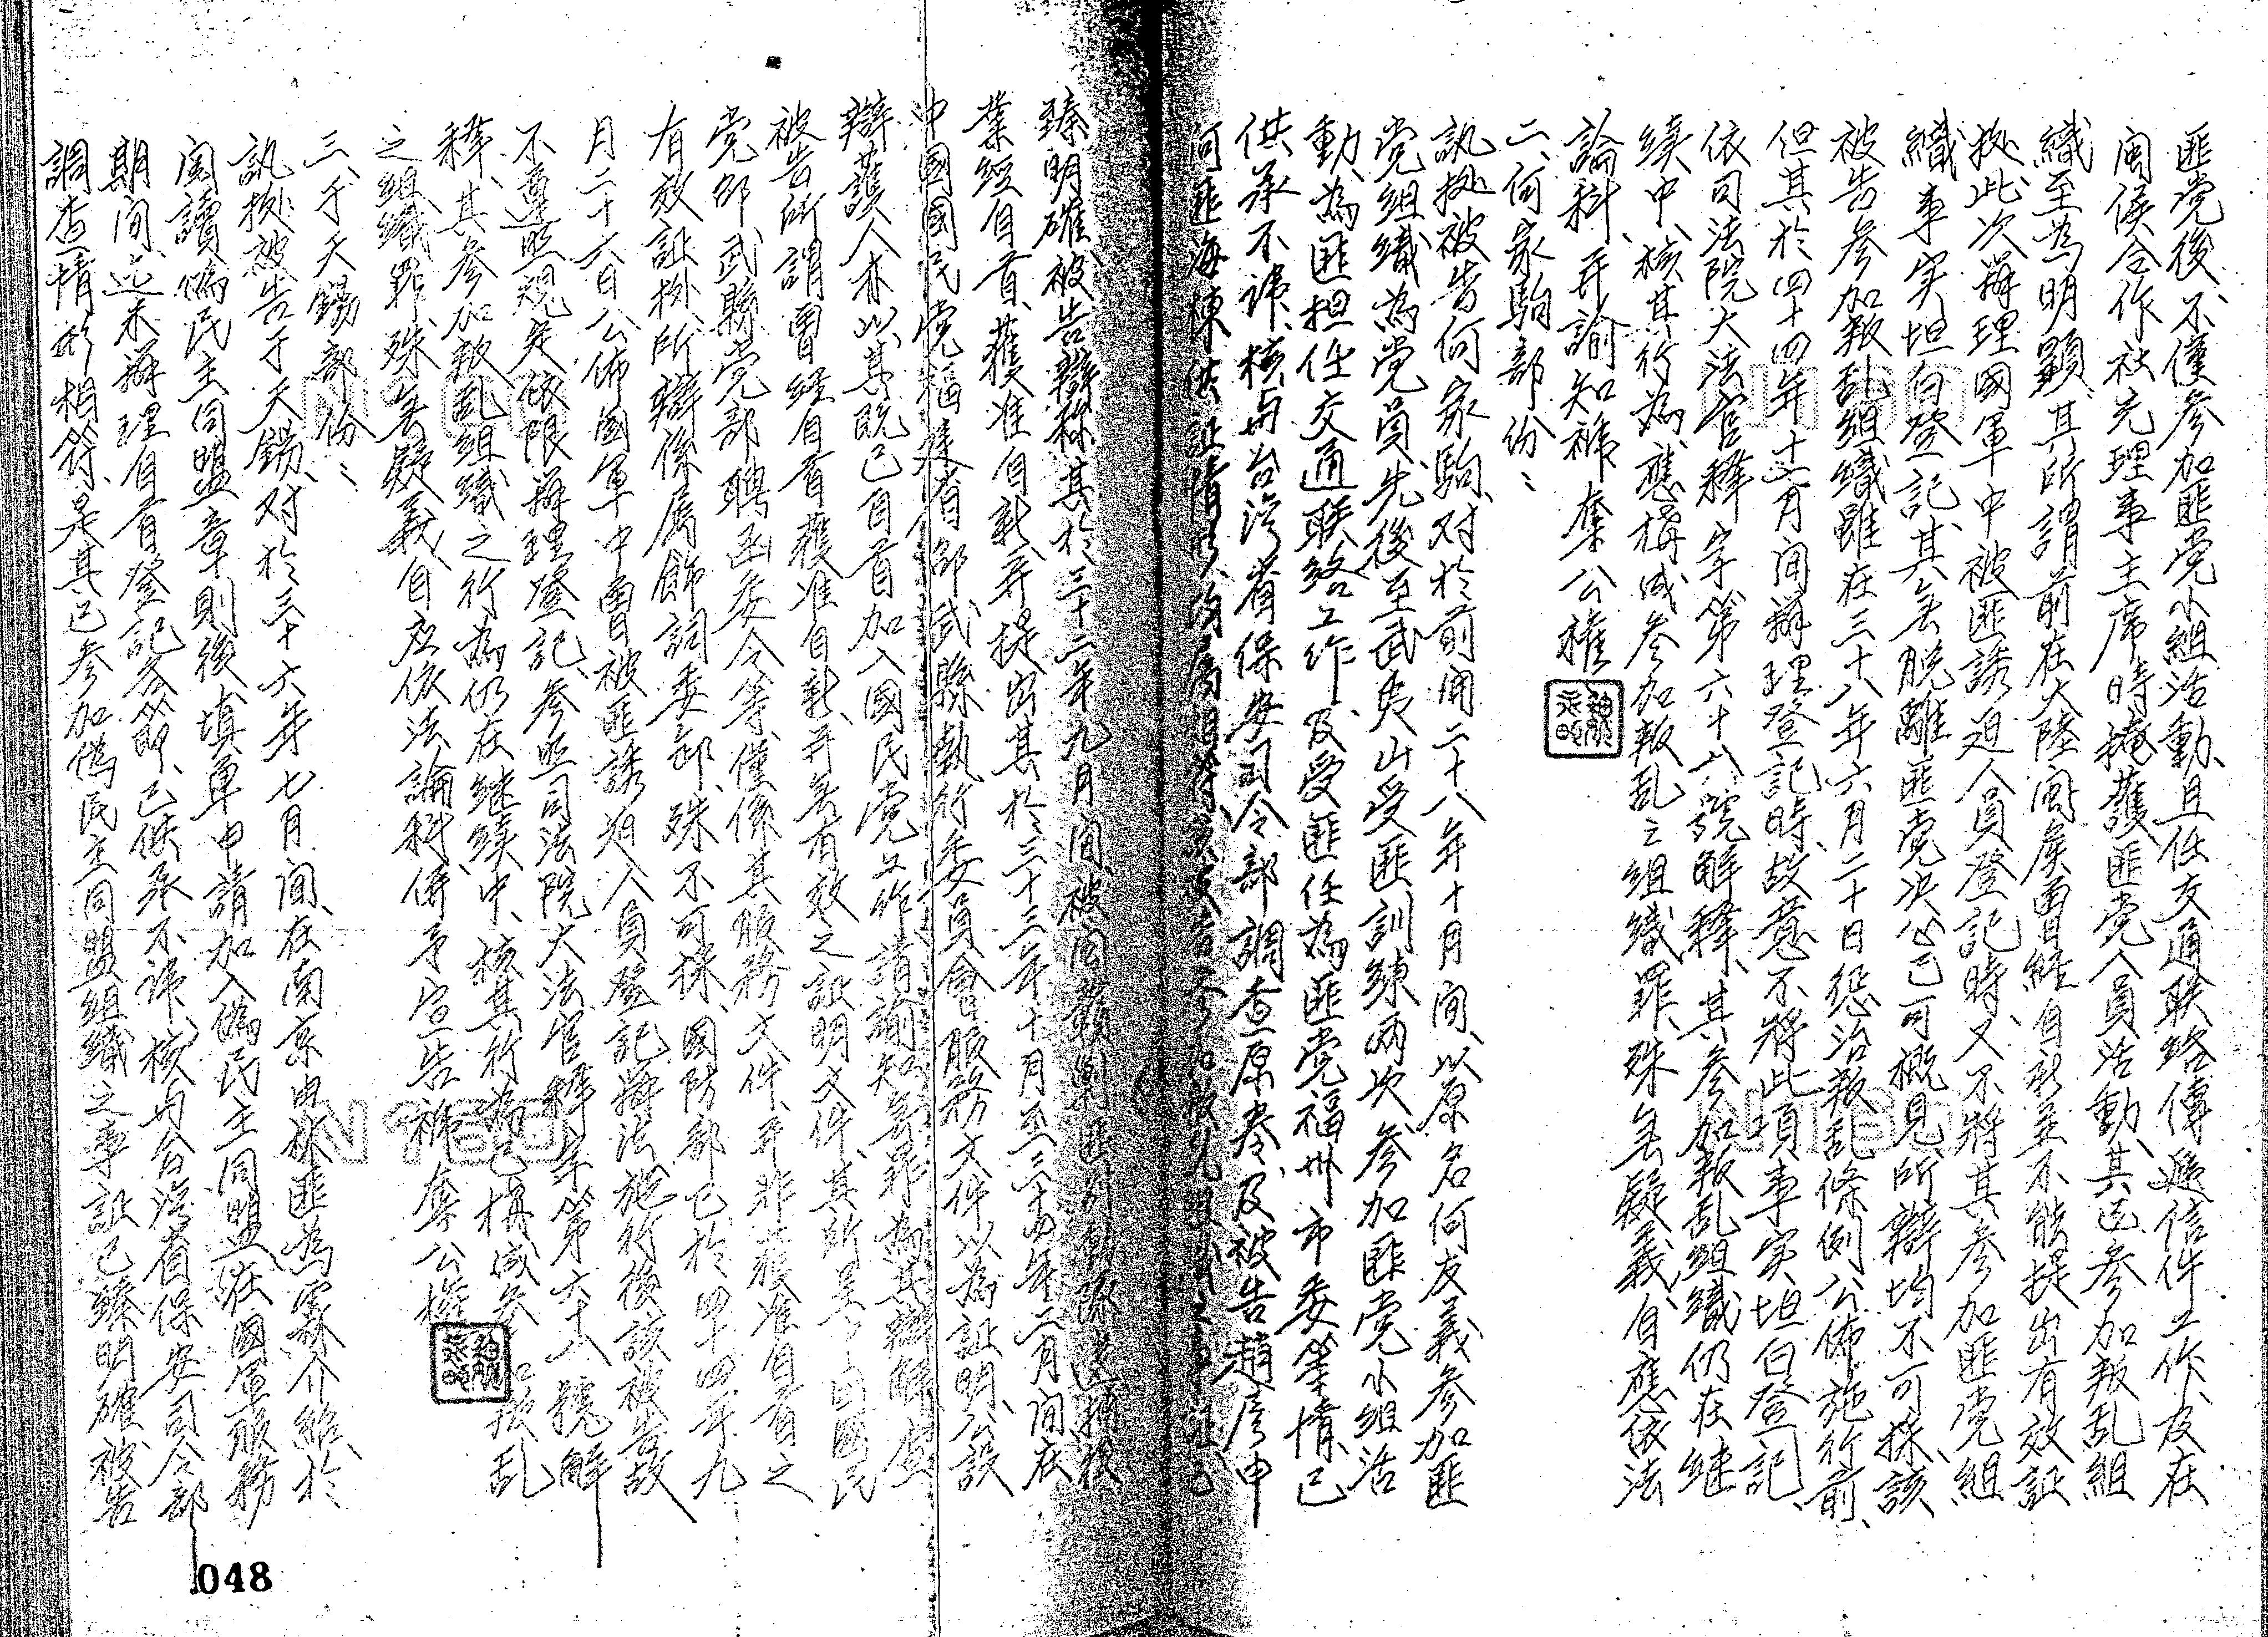 匪党後、不僅参加匪党小組活動、且任交通联络傳遞信件工作、及在
闽侯合作社充理事主席時掩護匪党人員活動、其已参加叛乱組
織至為明顯、其所謂前在大陸闽侯曾經自新並不能提出有效証
拠、此次辦理國軍中被匪誘迫人員登記時、又不將其参加匪党組
織事实坦白登記、其無脱離匪党决心已可概見、所辯均不可採、該
被告参加叛乱組織雖在三十八年六月二十日惩治叛乱條例公佈施行前、
但其於四十四年十一月间辦理登記時、故意不將此項事实坦白登記、
依司法院大法官释字第六十八號解释、其参加叛乱組織仍在继
续中、核其行為、應構成参加叛乱之組織罪、殊無疑義、自應依法
論科、并諭知褫奪公權
二、何家駒部份：
訊拠被告何家駒、对於前闻二十八年十月间、以原名何友義参加匪
党組織為党員、先後至武夷山受匪訓練兩次、参加匪党小組活
動、為匪担任交通联络工作、及受匪任為匪党福州市委等情、已
供承不諱、核与台湾省保安司令部調查原卷、及被告趙彦申
何匪海棟供証情形
臻明確、被告辯称其於三十二年九月间、被闽
業經自首、獲准自新、并提出其於三十三年十月至三十四年二月间在
中國國民党福建省邵武縣執行委員會服務文件以為証明、公設
辯護人亦以其既已自首加入國民党工作、請諭知無罪為其辯解、查
被告所謂曾经自首獲准自新、并無有效之証明文件、其所呈中國國民
党邵武縣党部聘函委令等、僅係其服務文件、并非獲准自首之
有效証拠、所辯係属飾詞委卸、殊不可採、國防部已於四十四年九
月二十六日公佈國軍中曾被匪誘迫人員登記辦法施行後、該被告故
不遵照規定依限辦理登記、参照司法院大法官释字第六十八號解
释、其参加叛乱組織之行為仍在继续中、核其行為已構成参加叛乱
之組織罪、殊無疑義、自应依法論科、併予宣告褫奪公權
三、于天錫部份：
訊拠被告于天錫、对於三十六年七月间、在南京由林匪為霖介紹、於
閱讀偽民主同盟章則後、填单申請加入偽民主同盟、在國軍服務
期间、迄未辦理自首登記各節、已供承不諱、核与台湾省保安司令部
調查情形相符、是其已参加偽民主同盟組織之事証已臻明確、被告
048